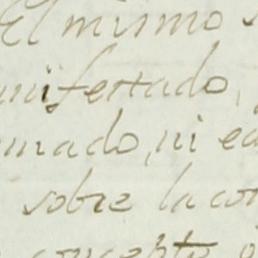 El mismo
nifestado,
mado, ni
sobre la
concepto